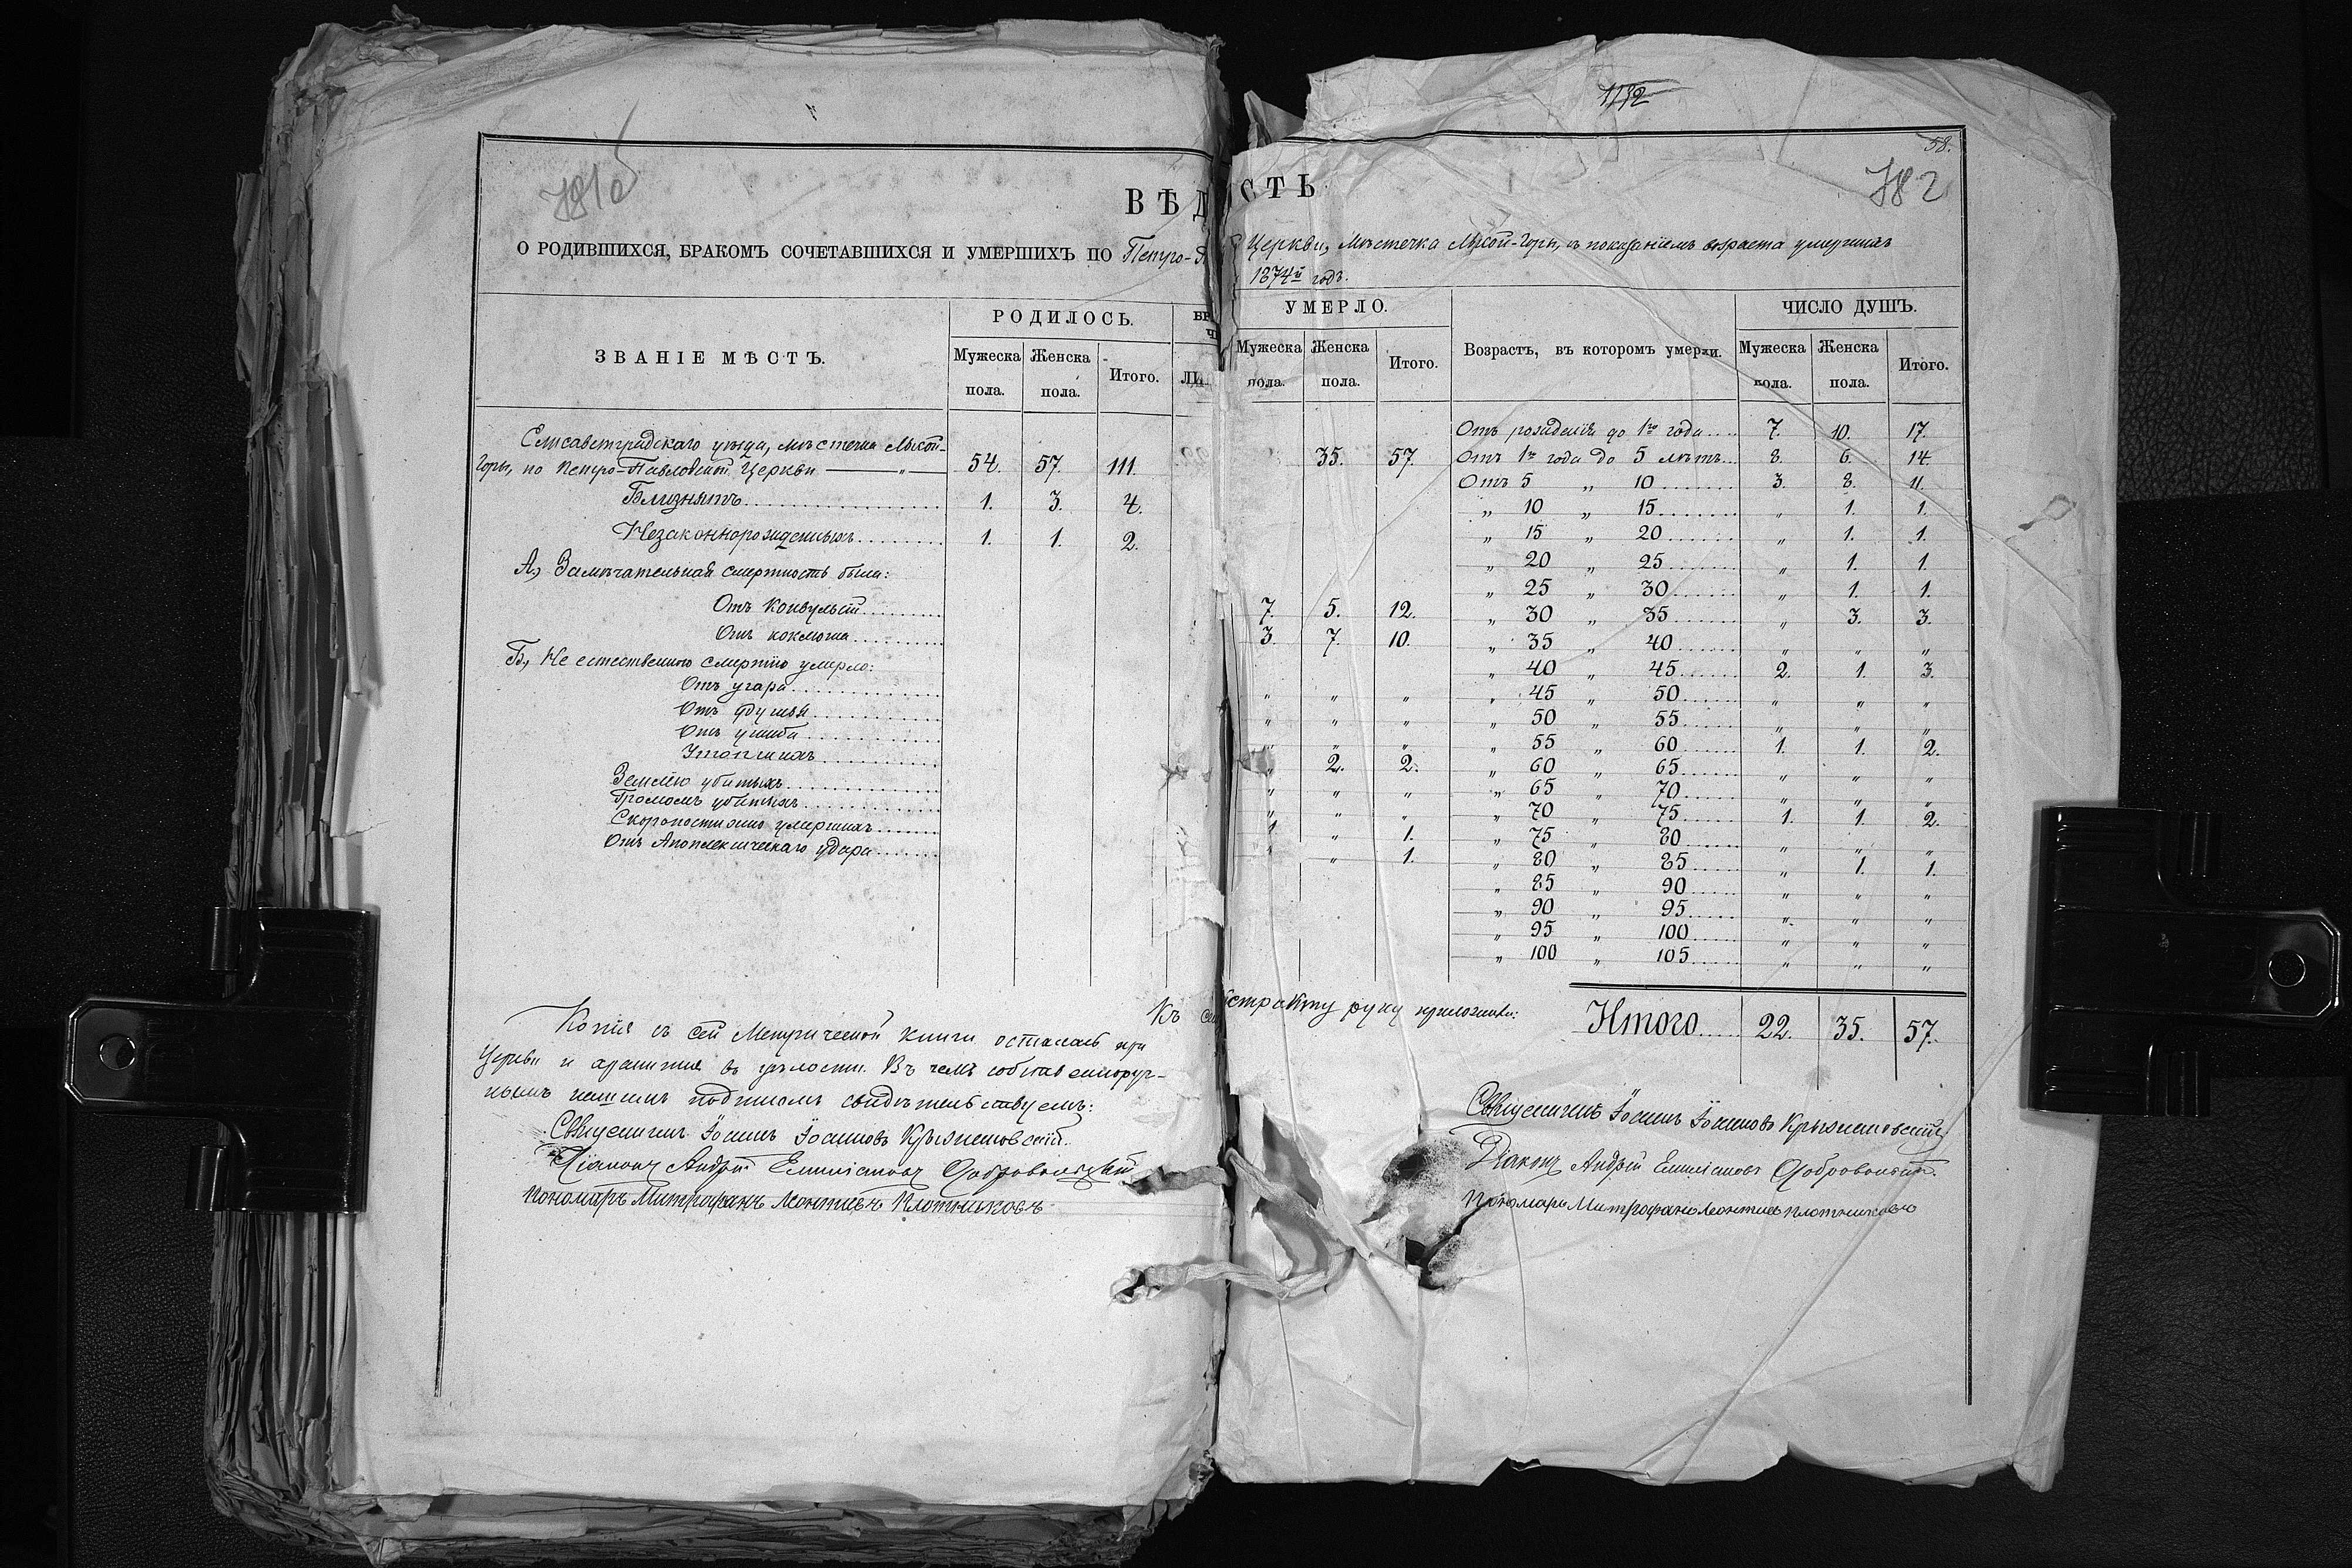 1132
58.
781об
782
ВѢД СТЬ
О РОДИВШИХСЯ, БРАКОМЪ СОЧЕТАВШИХСЯ И УМЕРШИХЪ ПО Петро- Церкви, Мѣстечка Лысой-Горы, съ показаніемъ возраста умершихъ
1874й годъ.
ЗВАНІЕ МѢСТЪ.
РОДИЛОСЬ.
Мужеска пола. Женска пола. Итого.
УМЕРЛО.
Мужеска пола. Женска пола. Итого.
Возрастъ, въ которомъ умерли.
ЧИСЛО ДУШЪ.
Мужеска пола. Женска пола. Итого.
Елисаветградскаго уѣзда, мѣстечка Лысой-
Горы, по Петро-Павловской Церкви — „ — 54. 57. 111. 35. 57.
Близнятъ 1. 3. 4.
Незаконнорожденныхъ 1. 1. 2.
А., Замѣчательная смертность была:
Отъ Конвульсій 7. 5. 12.
Отъ коклюша 3. 7. 10.
Б., Не естественною смертію умерло:
Отъ угара „ „ „
Отъ удушья „ „ „
Отъ ушиба „ „ „
Утопшихъ „ 2. 2.
Землею убитыхъ „ „ „
Громомъ убитыхъ „ „ „
Скоропостижно умершихъ 1 „ 1.
Отъ Апоплексическаго удара „ 1.
Отъ рожденія до 1го года 7. 10. 17.
Отъ 1го года до 5 лѣтъ 8. 6. 14.
Отъ 5 „ 10 3. 8. 11.
„ 10 „ 15 „ 1. 1.
„ 15 „ 20 „ 1. 1.
„ 20 „ 25 „ 1. 1.
„ 25 „ 30 „ 1. 1.
„ 30 „ 35 „ 3. 3.
„ 35 „ 40 „ „ „
„ 40 „ 45 2. 1. 3.
„ 45 „ 50 „ „ „
„ 50 „ 55 „ „ „
„ 55 „ 60 1. 1. 2.
„ 60 „ 65 „ „ „
„ 65 „ 70 „ „ „
„ 70 „ 75 1. 1. 2.
„ 75 „ 80 „ „ „
„ 80 „ 85 „ 1. 1.
„ 85 „ 90 „ „ „
„ 90 „ 95 „ „ „
„ 95 „ 100 „ „ „
„ 100 „ 105 „ „ „
Итого 22. 35. 57.
Копія съ сей Метрической книги осталась при
Церкви и хранится въ цѣлости. Въ чемъ собственноруч-
нымъ нашимъ подписомъ свидѣтельствуемъ:
Священникъ Іоаннъ Іоанновъ Крыжановскій.
Діаконъ Андрей Добровольскій
Пономарь Митрофанъ Леонтіевъ Плотниковъ
Къ сей стракту руку приложили:
Священникъ Іоаннъ Іоанновъ Крыжановскій
Діаконъ Андрей Добровольскій.
Пономарь Митрофанъ Леонтіевъ Плотниковъ